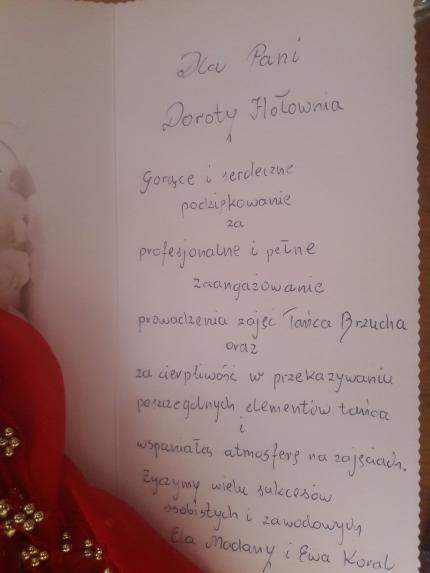 Dla Pani
Doroty Hołownia
Gorące i serdeczne
podziękowanie
za
profesjonalne i pełne
zaangażowanie
prowadzenia zajęć Tańca Brzucha
oraz
za cierpliwość w przekazywaniu
poszczególnych elementów tańca
i
wspaniałą atmosferę na zajęciach.
Życzymy wielu sukcesów
osobistych i zawodowych
Ela Madany i Ewa Koral